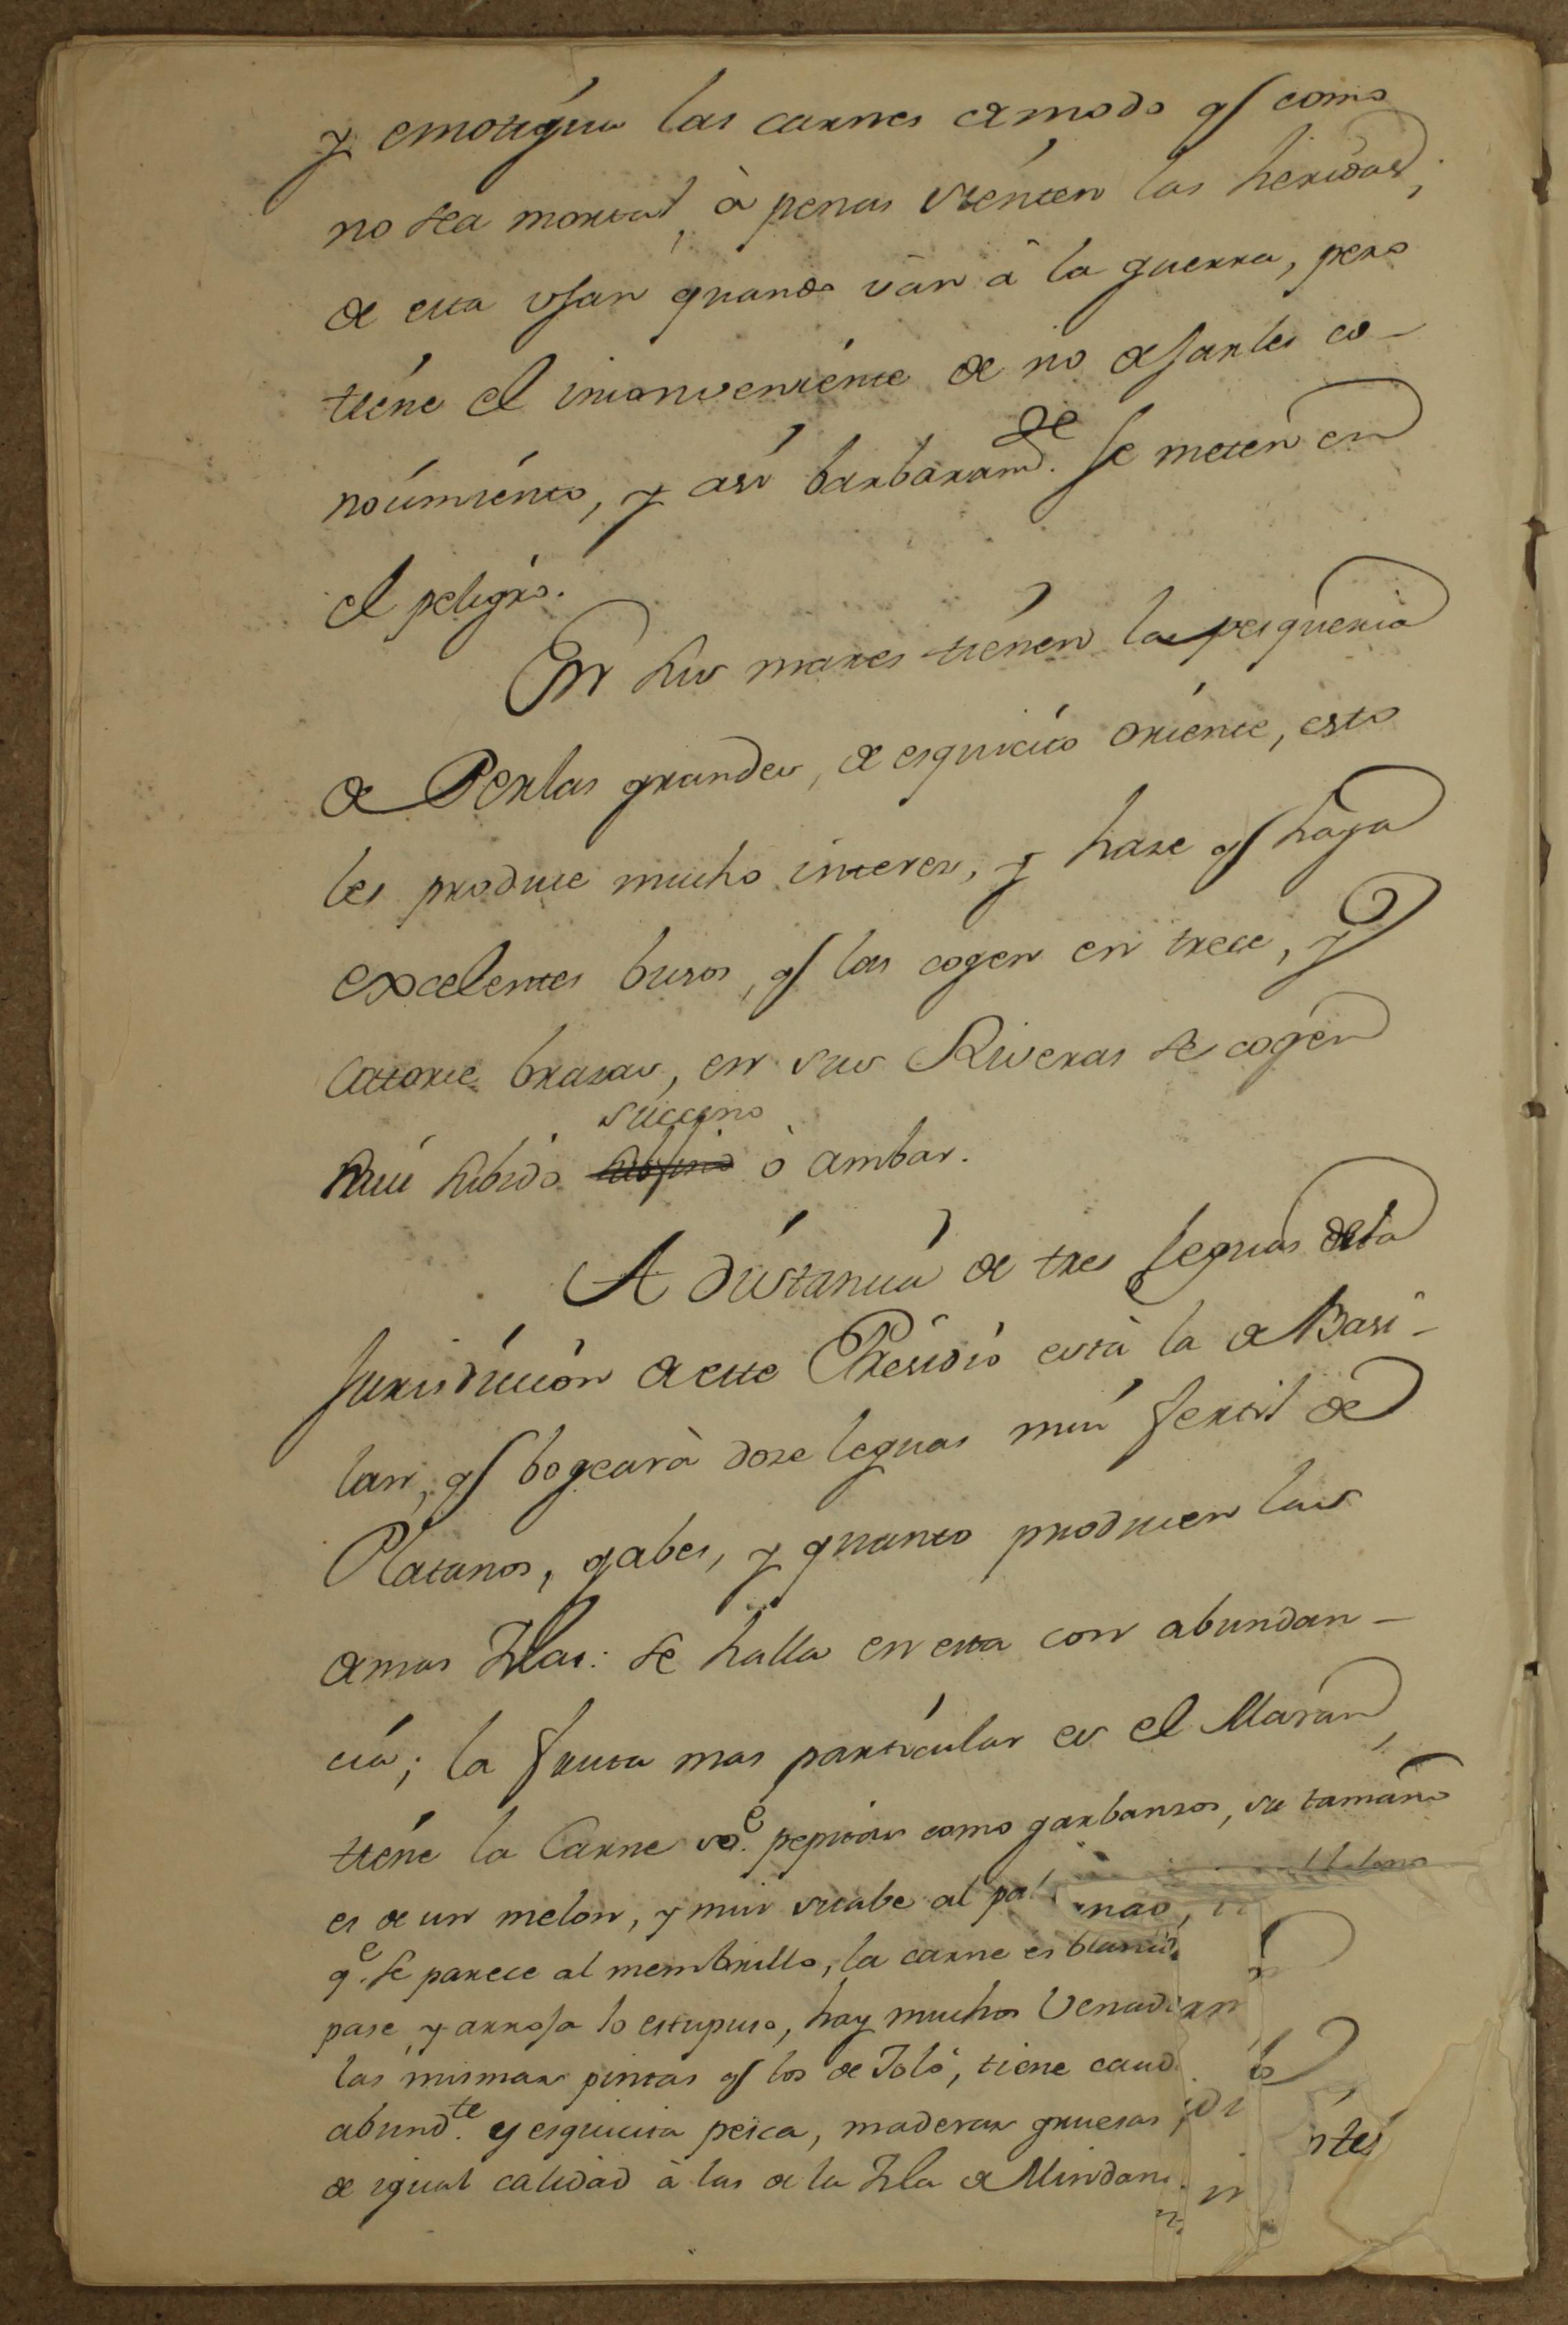 y emortigua las carnes de modo q̃ como
no sea mortal, à penas sienten las heridas;
de esta usan quando ván â la guerra, pero
tiéne el inconveniénte de no dejarles co-
nocimiénto, y asi barbaram.te se meten en
el peligro.
En sus mares tiénen la pesqueria
de Perlas grandes, de esquicito oriénte, esto
les produce mucho interes, y haze q̃ haya
excelentes busos, q̃ las cogen en trece, y
Catorce brazas, en sus Riveras se cogen
succino
mui subido ò ambar.
A distancia de tres leguas dela
Jurisdicción de este Presidio está la de Basi-
lan, q̃ bogeará doze leguas mui fertil de
Platanos, gabes, y quanto producen las
demas Yslas: se halla en esta con abundan-
cia; la fruta mas particular es el Maran,
tiéne la Carne so.e pepitas como garbanzos, su tamaño
es de un melon, y mui suabe al
q.e se parece al membrillo, la carne es
pase, y arroja lo estuposo, hay muchos
las mismas pintas q̃ los de Joló, tiene
abund.te y esquicita pesca, maderas gruesas
de igual calidad à las de la Ysla de